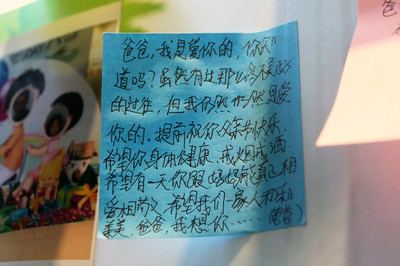 爸爸,我是爱你的,你知
道吗?虽然有过那么多不美好
的过往,但我仍然 是爱
你的、提前祝你父亲节快乐.
希望你身体健康,戒烟戒酒
希望有一天你跟妈妈能真正相
爱相 希望我们一家人和乐
美、爸爸,我想你……
爸